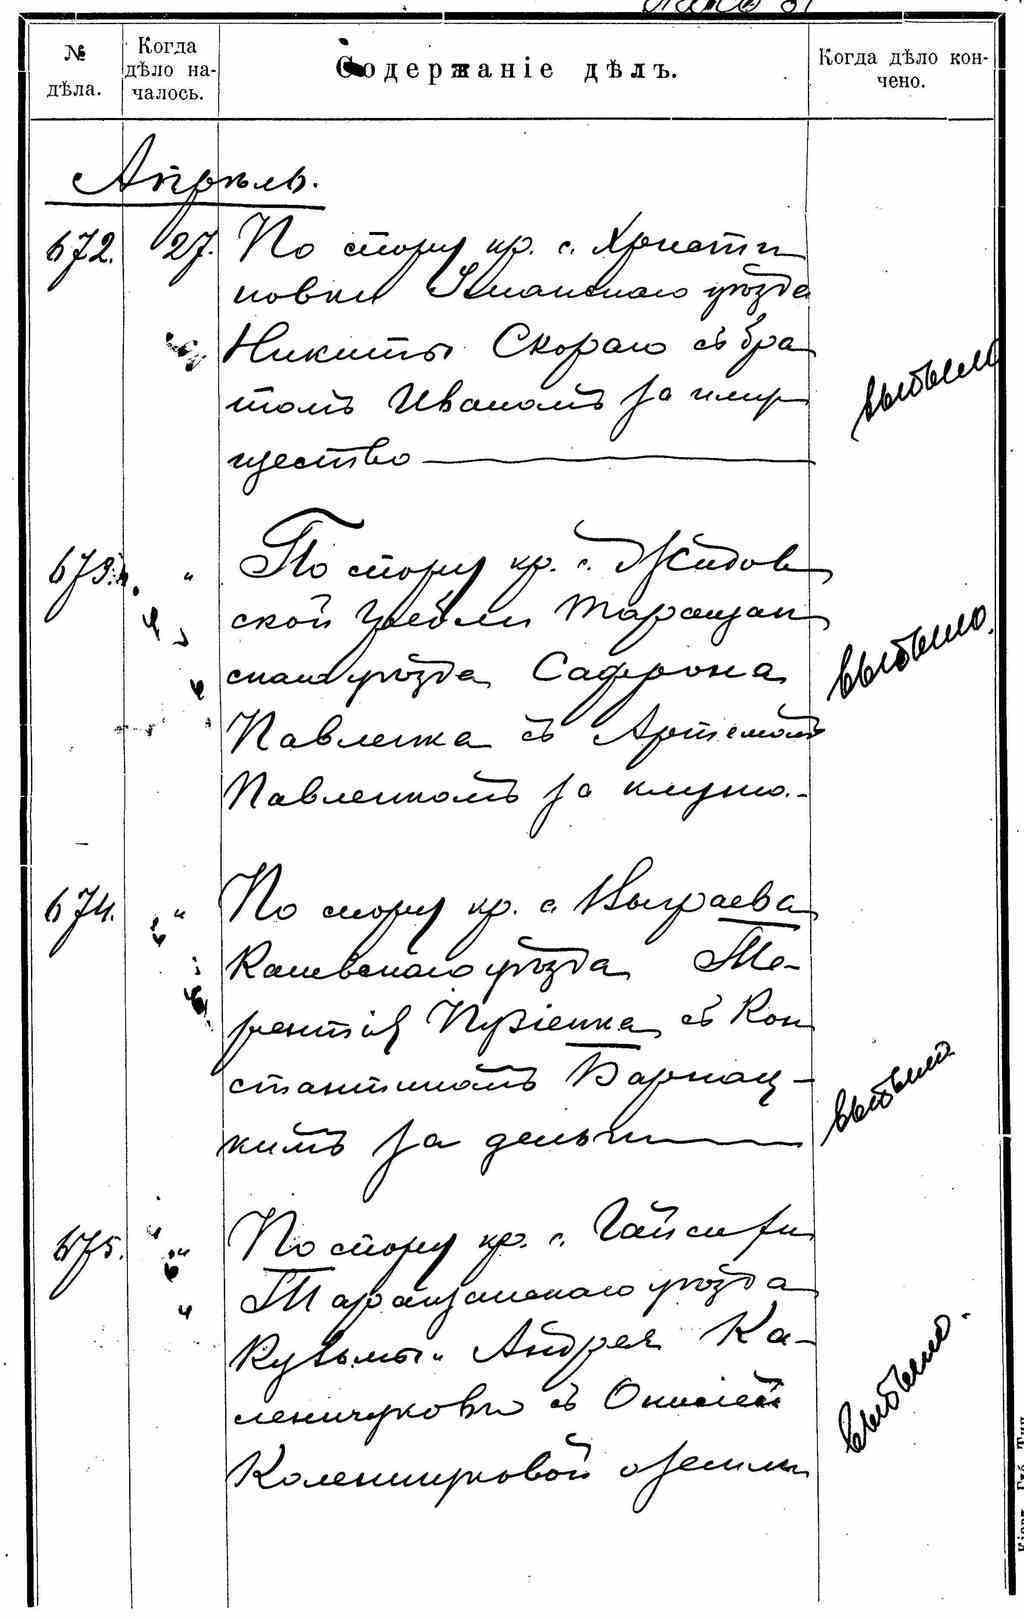 № дѣла.
Когда дѣло на-
чалось.
Содержаніе дѣлъ.
Когда дѣло кон-
чено.
Апрѣль.
672. 27. По спору кр. с. Христи
новки Уманскаго уѣзда
Никиты Скораго съ бра
томъ Иваномъ за иму
щество
выбыло
673. " По спору кр. с. Жидов
ской Гребли Таращан
скаго уѣзда Сафрона
Павленка съ Артемомъ
Павленкомъ за клуню.
выбыло.
674. " По спору кр. с. Выграева
Каневскаго уѣзда Те-
рентія Пузіенка съ Кон
стантиномъ Барнац-
кимъ за деньги
выбыло
675. " По спору кр. с.
Таращанскаго уѣзда
Кузьмы и Андрея Ка-
леничуковъ съ Онисіей
Каленичуковой о земли
выбыло.